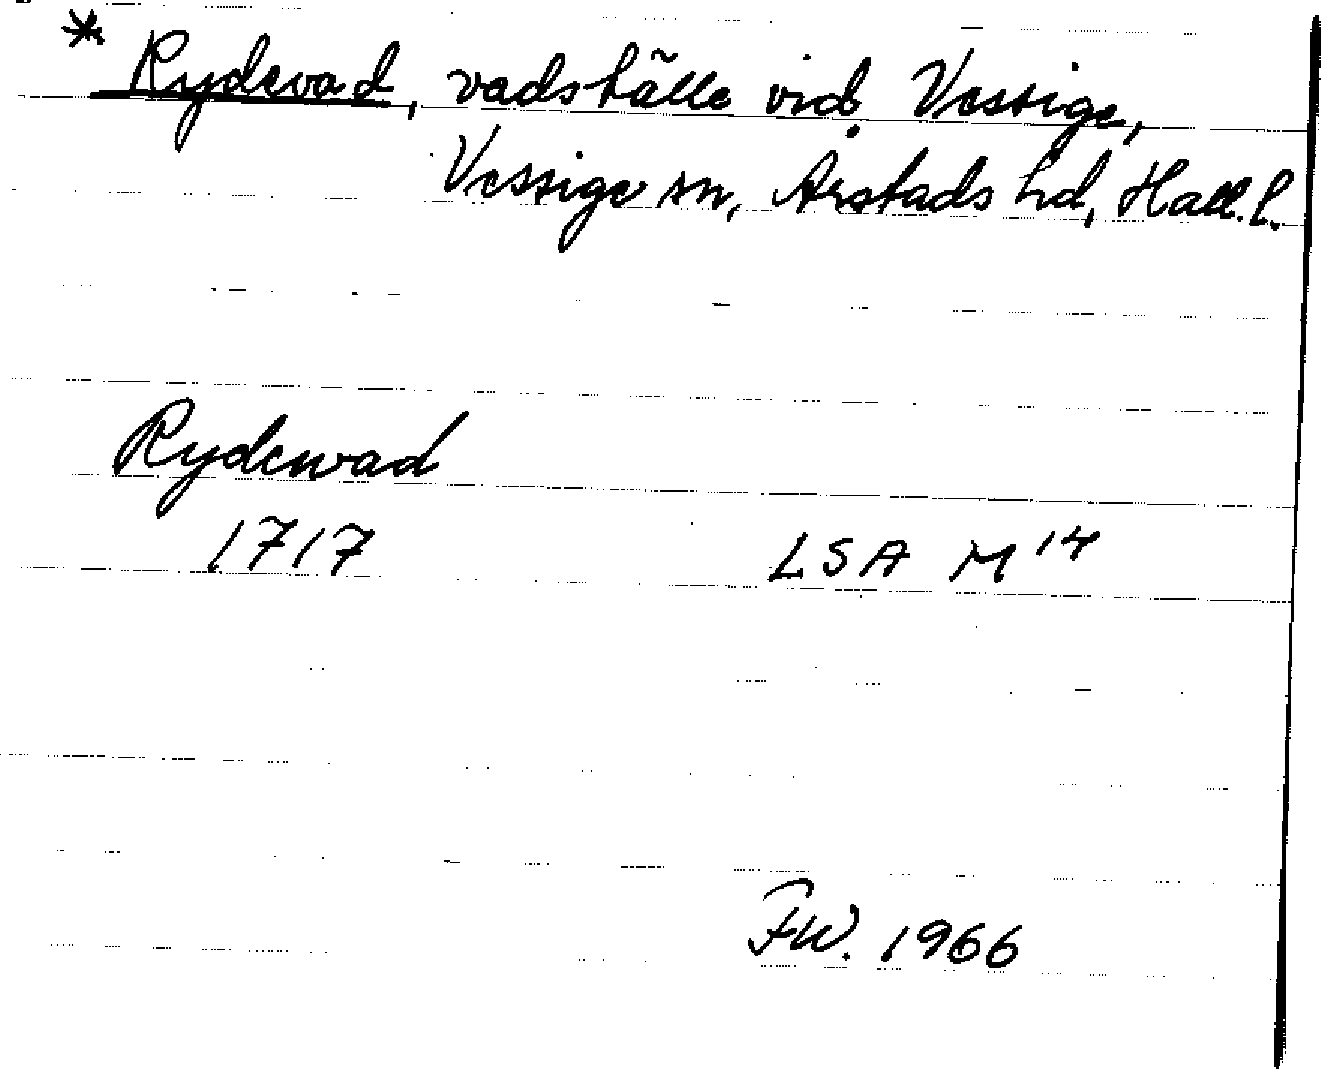 * Rydevad, vadställe vid Vessige,
Vessige sn, Årstads hd, Hall. l.
Rydewad
1717 LSA M 14
FW. 1966